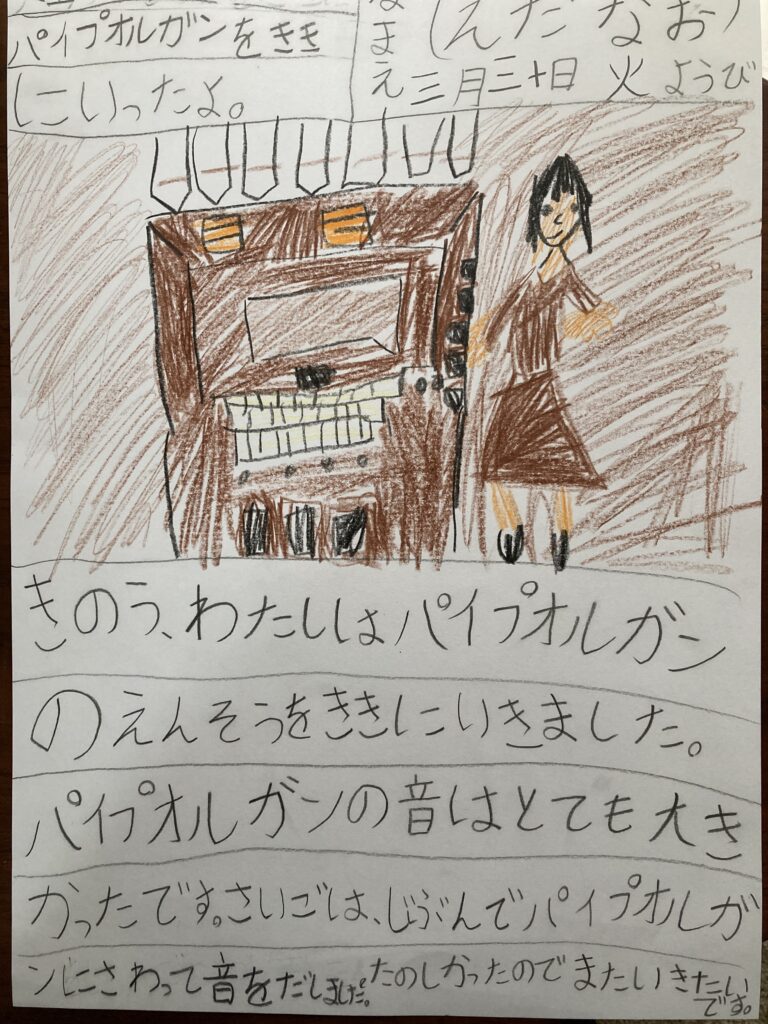 パイプオルガンをきき
にいったよ。
なまえ(えだなお)
三月三十日 火ようび
きのう、わたしはパイプオルガン
のえんそうをききにいきました。
パイプオルガンの音はとても大き
かったです。さいごは、じぶんでパイプオルガ
ンにさわって音をだしました。たのしかったのでまたいきたい
です。